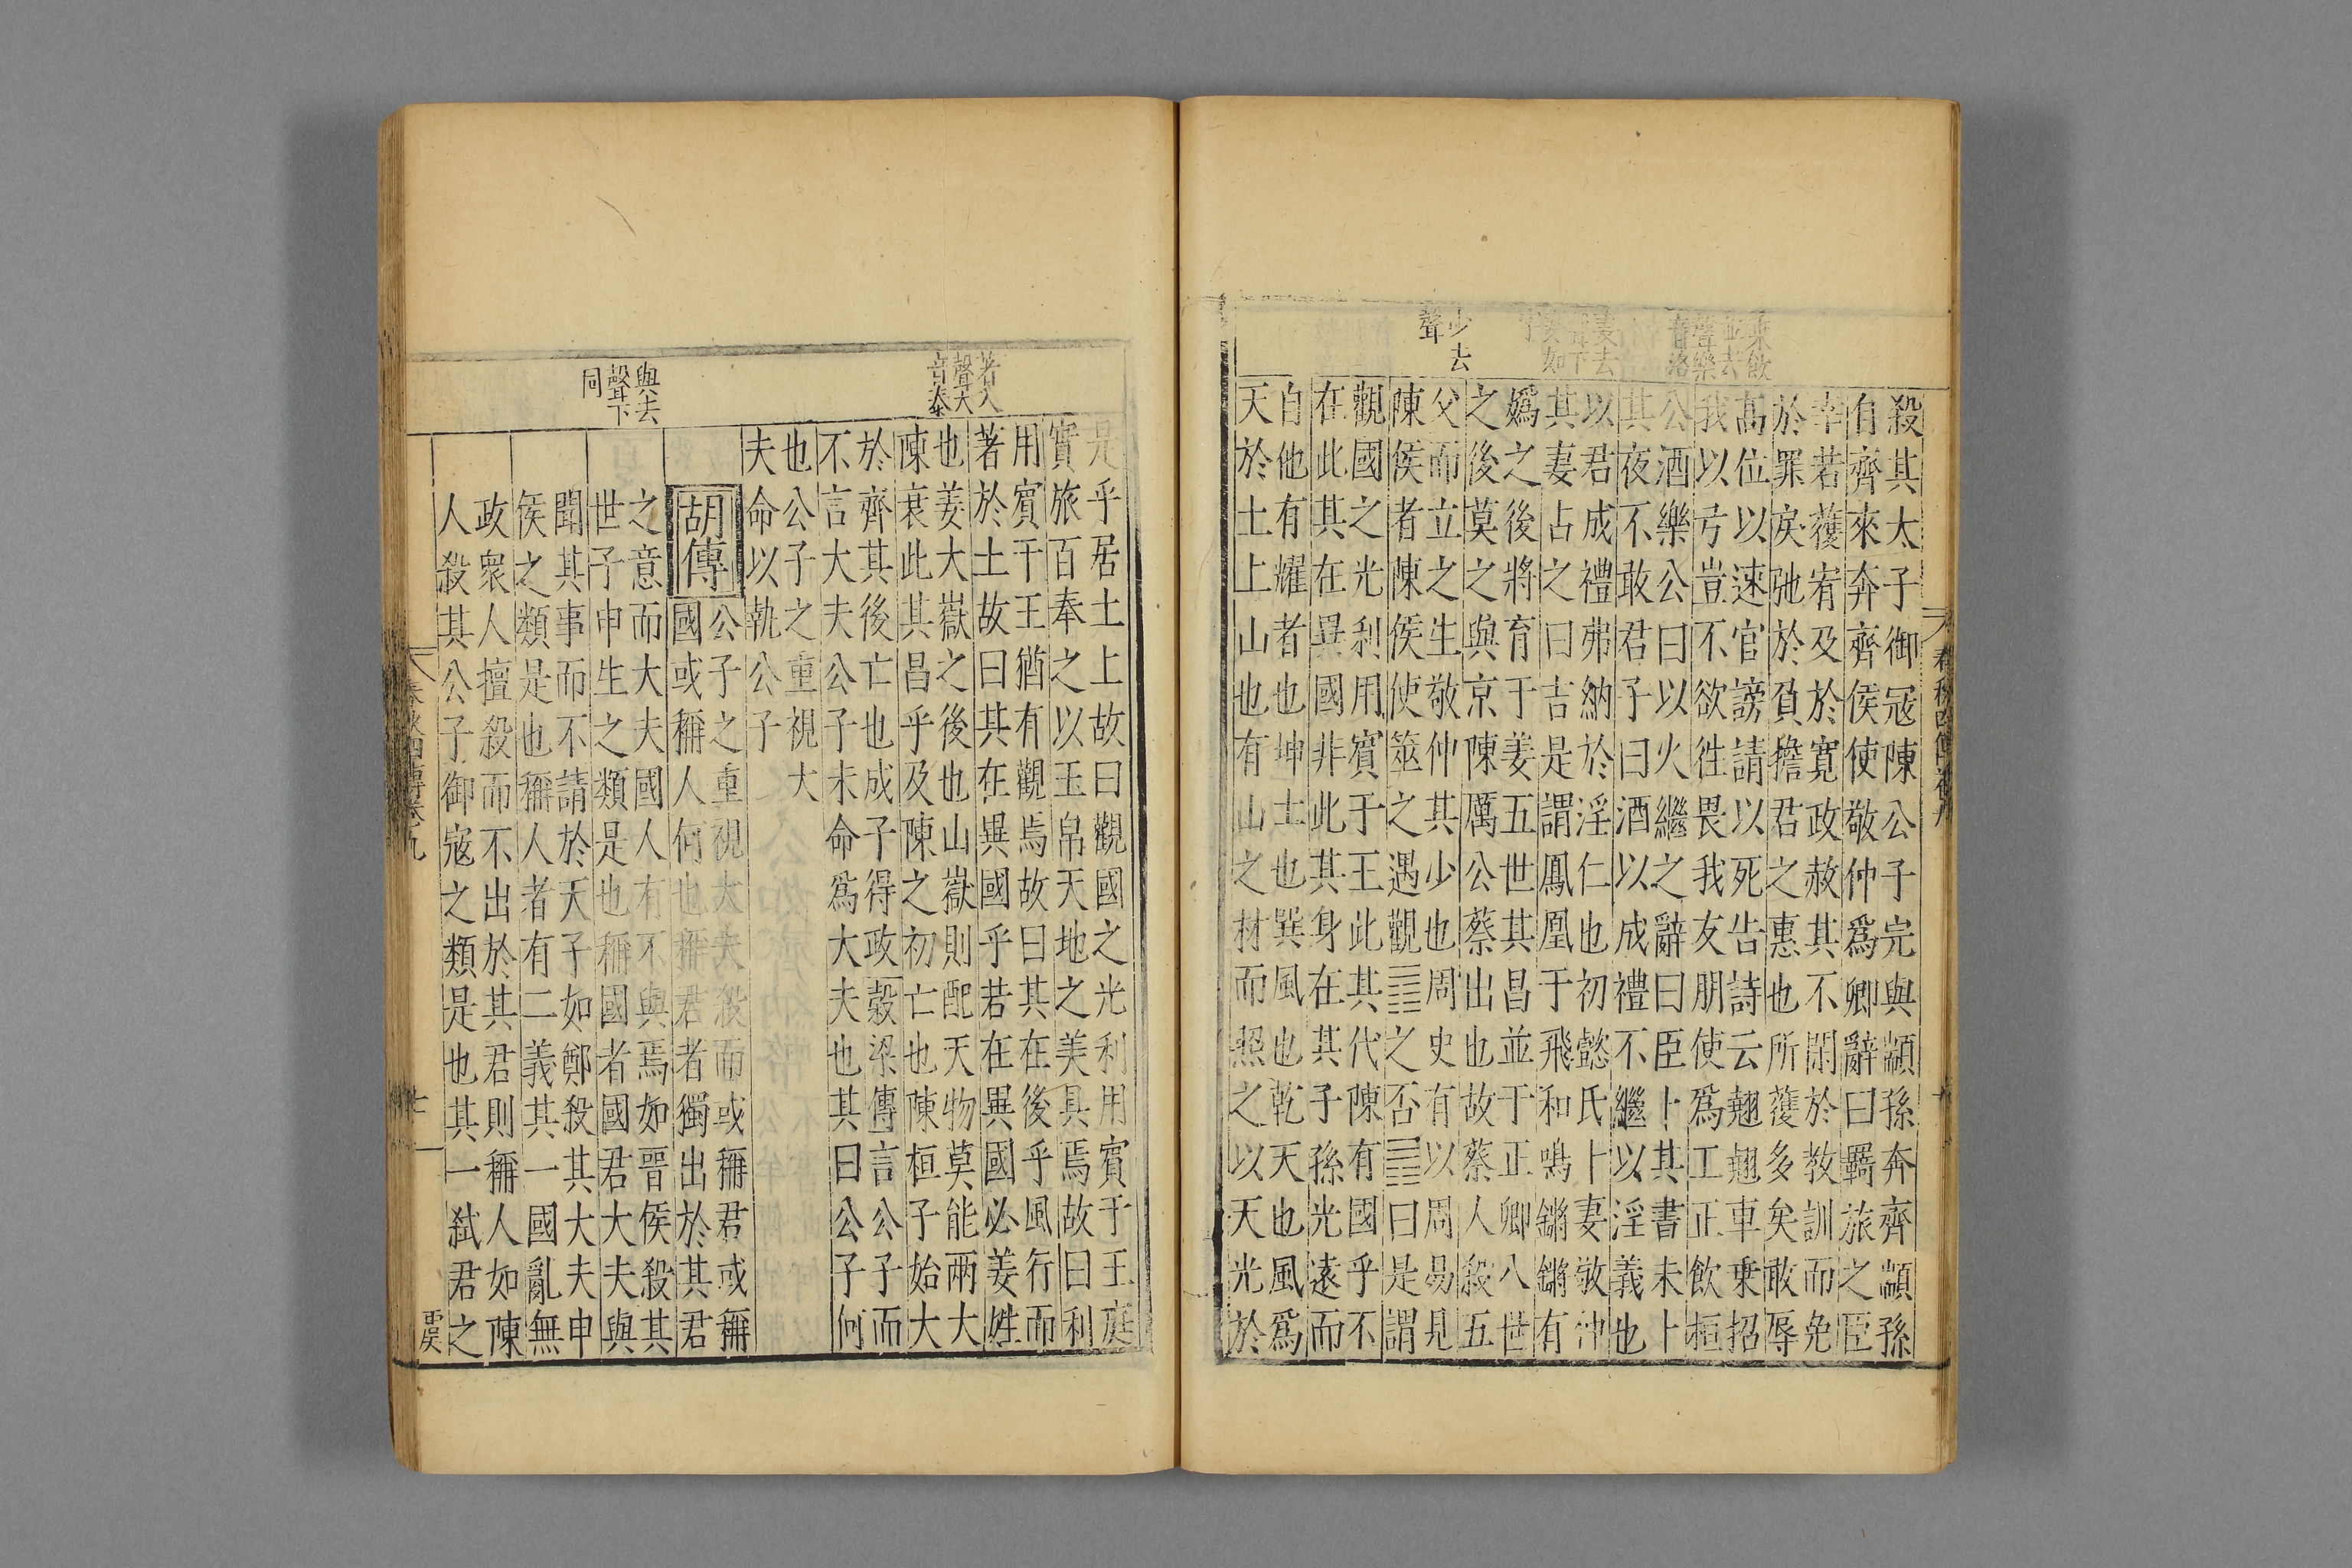 乘飲
並去
聲樂
音洛
妻去
聲下
少去
聲
殺其太子御寇陳公子完與顓孫奔齊顓孫
自齊來奔齊侯使敬仲爲卿辭曰羈旅之臣
幸若獲宥及於寛政赦其不閑於教訓而免
於罪戾弛於負擔君之惠也所獲多矣敢辱
高位以速官謗請以死告詩云翹翹車乗招
我以弓豈不欲徃畏我友朋使爲工正飲桓
公酒樂公曰以火繼之辭曰臣卜其晝未卜
其夜不敢君子曰酒以成禮不繼以淫義也
以君成禮弗納於淫仁也初懿氏卜妻敬仲
其妻占之曰吉是謂鳳凰于飛和鳴鏘鏘有
嬀之後將育于姜五世其昌並于正卿八世
之後莫之與京陳厲公蔡出也故蔡人殺五
父而立之生敬仲其少也周史有以周易見
陳侯者陳侯使筮之遇觀䷓之否䷋曰是謂
觀國之光利用賓于王此其代陳有國乎不
在此其在異國非此其身在其子孫光遠而
自他有耀者也坤土也巽風也乾天也風爲
天於土上山也有山之材而照之以天光於
著入
聲大
音泰
與去
聲下
同
是乎居土上故曰觀國之光利用賓于王庭
實旅百奉之以玉帛天地之美具焉故曰利
用賓于王猶有觀焉故曰其在後乎風行而
著於土故曰其在異國乎若在異國必姜姓
也姜大嶽之後也山嶽則配天物莫能兩大
陳衰此其昌乎及陳之初亡也陳桓子始大
於齊其後亡也成子得政穀梁傳言公子而
不言大夫公子未命爲大夫也其曰公子何
也公子之重視大
夫命以執公子
胡傳
公子之重視大夫殺而或稱君或稱
國或稱人何也稱君者獨出於其君
之意而大夫國人有不與焉如晉侯殺其
世子申生之類是也稱國者國君大夫與
聞其事而不請於天子如鄭殺其大夫申
侯之類是也稱人者有二義其一國亂無
政衆人擅殺而不出於其君則稱人如陳
人殺其公子御寇之類是也其一弑君之
春秋四傳卷九